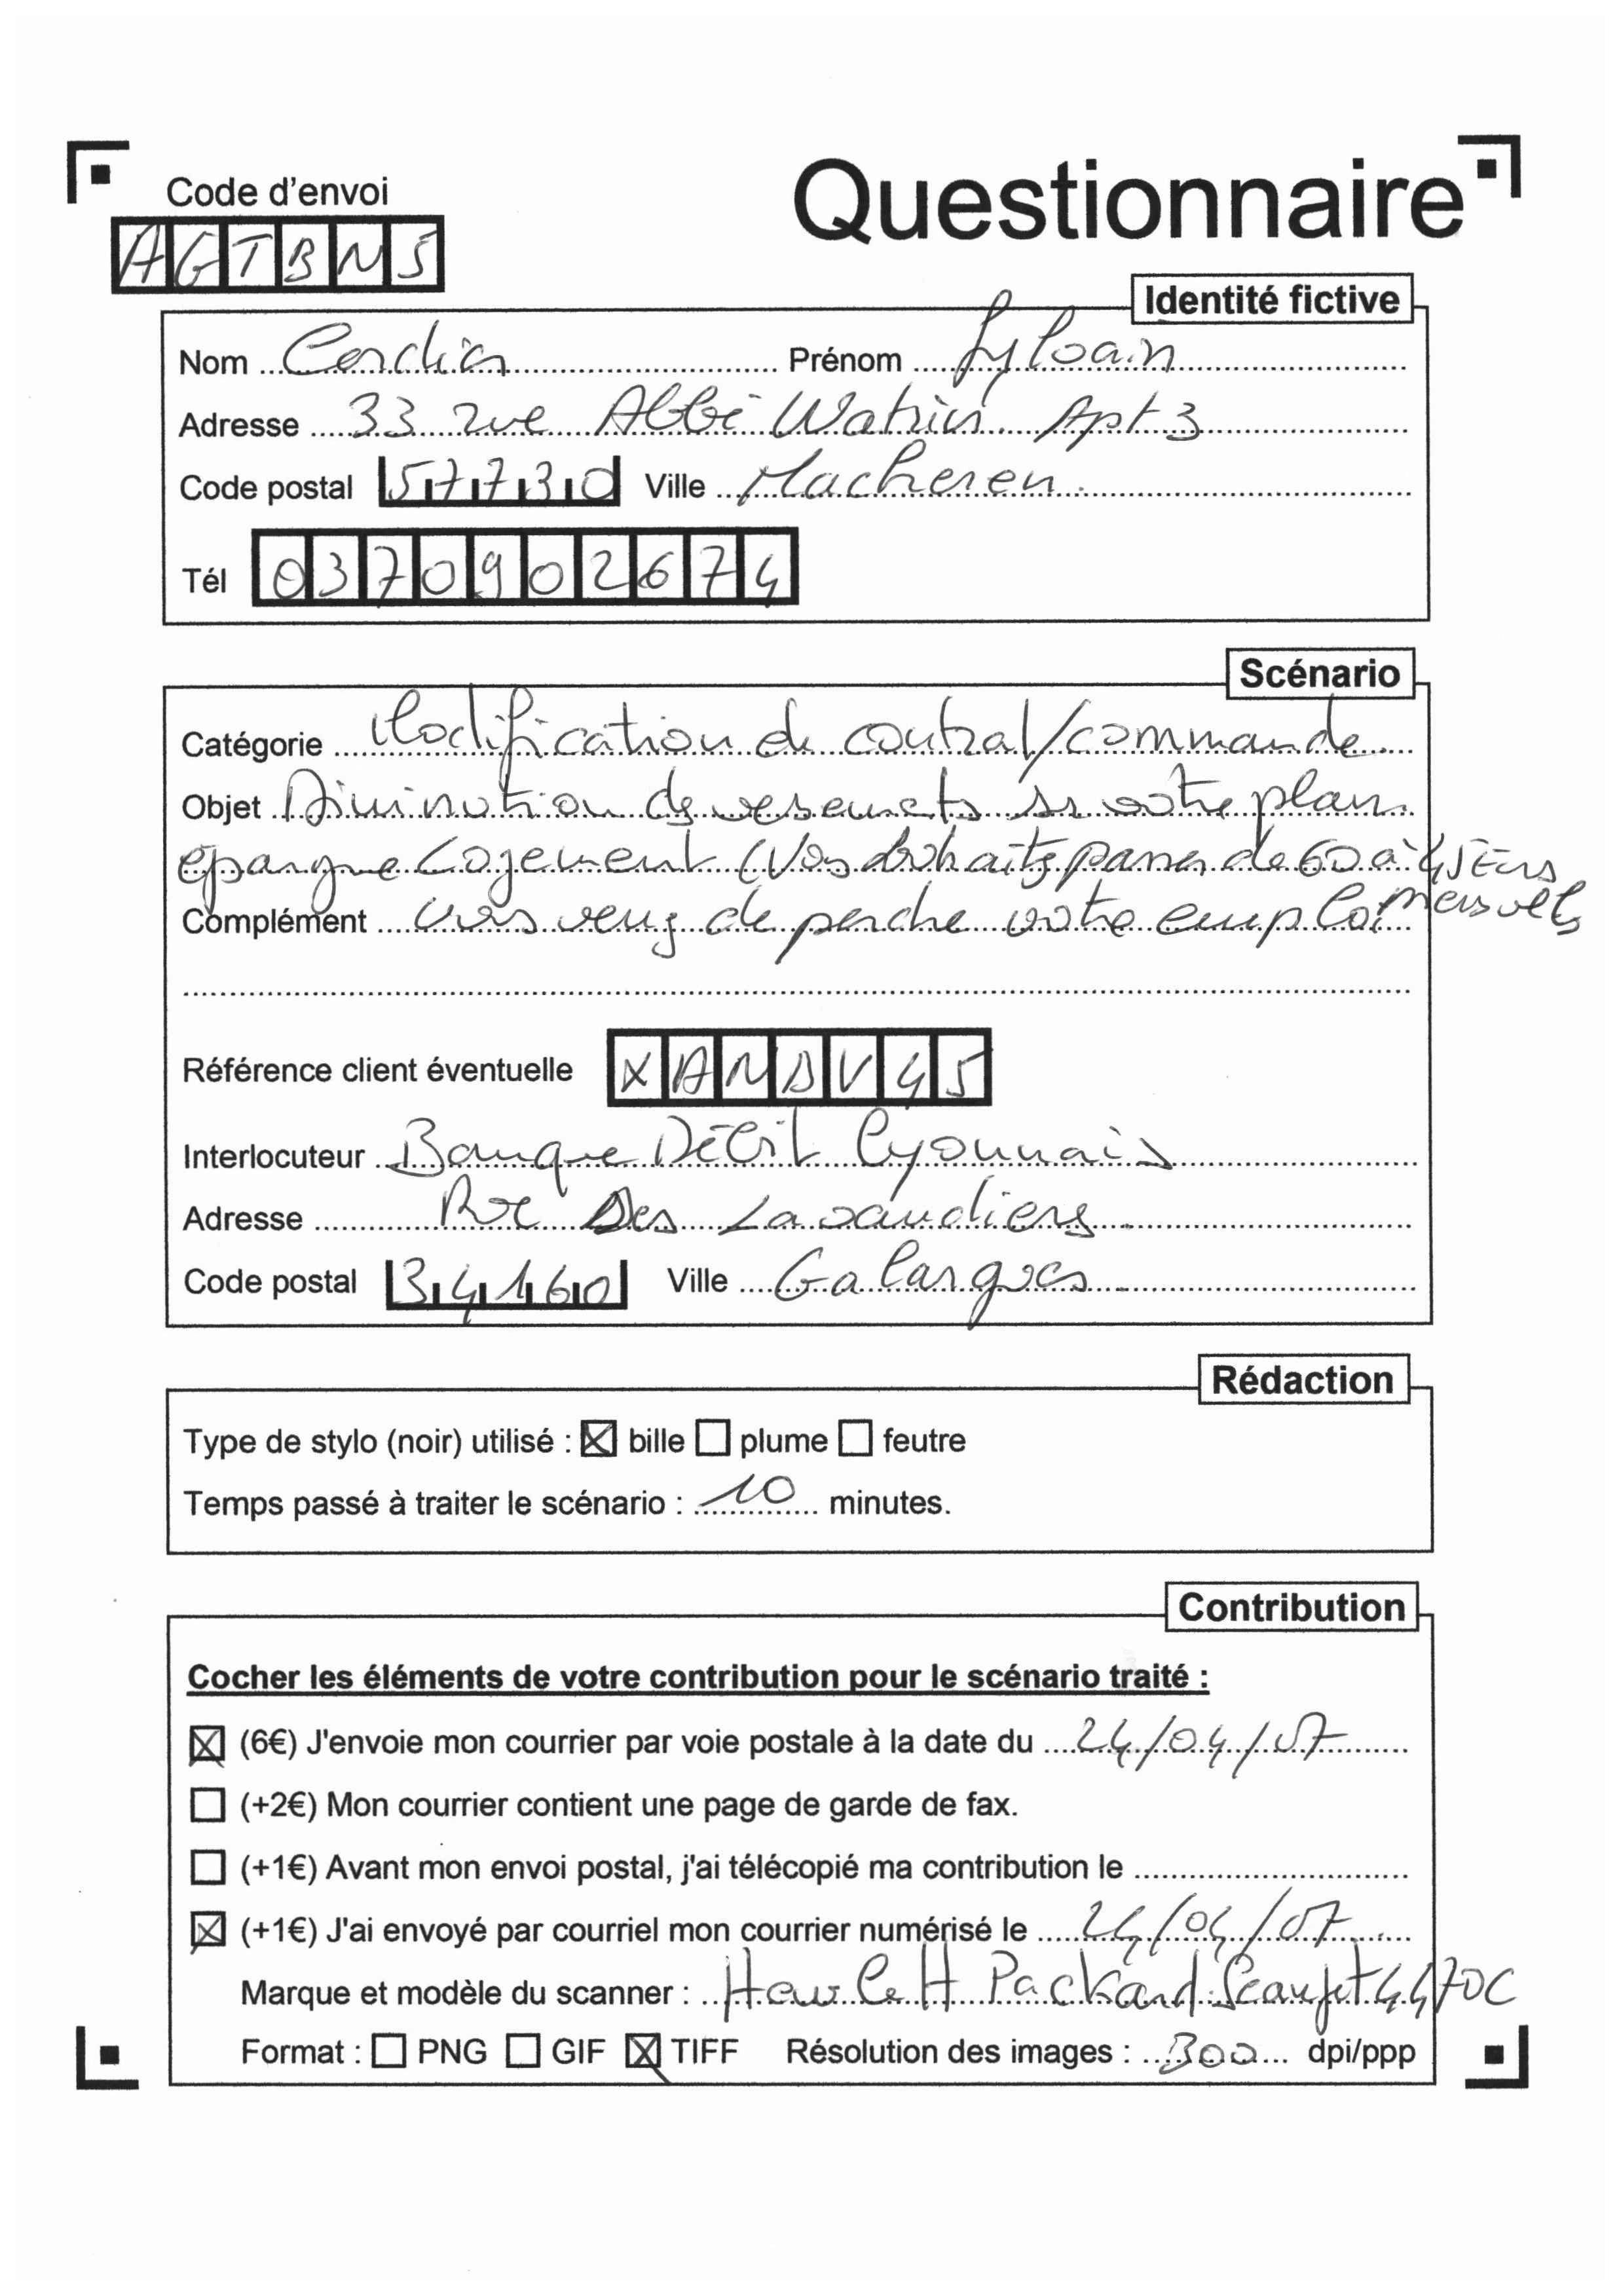 Questionnaire
Code d'envoi
AGTBNS
Identité fictive
Nom Cordier Prénom Sylvain
Adresse 33 rue Abbé Watrin Apt 3
Code postal 57730 Ville Macheren
Tél 0370902674
Scénario
Catégorie Modification de contrat/commande
Objet Diminution de versements sur votre plan
épargne Logement (Vous souhaitez passer de 60 à 45 Euros
mensuels
Complément vous venez de perdre votre emploi
Référence client éventuelle XANDV45
Interlocuteur Banque Débit Lyonnais
Adresse Rue Des Lavandiers
Code postal 34160 Ville Galargues
Rédaction
Type de stylo (noir) utilisé : bille plume feutre
Temps passé à traiter le scénario : 10 minutes.
Contribution
Cocher les éléments de votre contribution pour le scénario traité :
(6€) J'envoie mon courrier par voie postale à la date du 24/04/07
(+2€) Mon courrier contient une page de garde de fax.
(+1€) Avant mon envoi postal, j'ai télécopié ma contribution le
(+1€) J'ai envoyé par courriel mon courrier numérisé le 24/04/07
Marque et modèle du scanner : Hewlett Packard Scanjet 4470C
Format : PNG GIF TIFF Résolution des images : 300 dpi/ppp